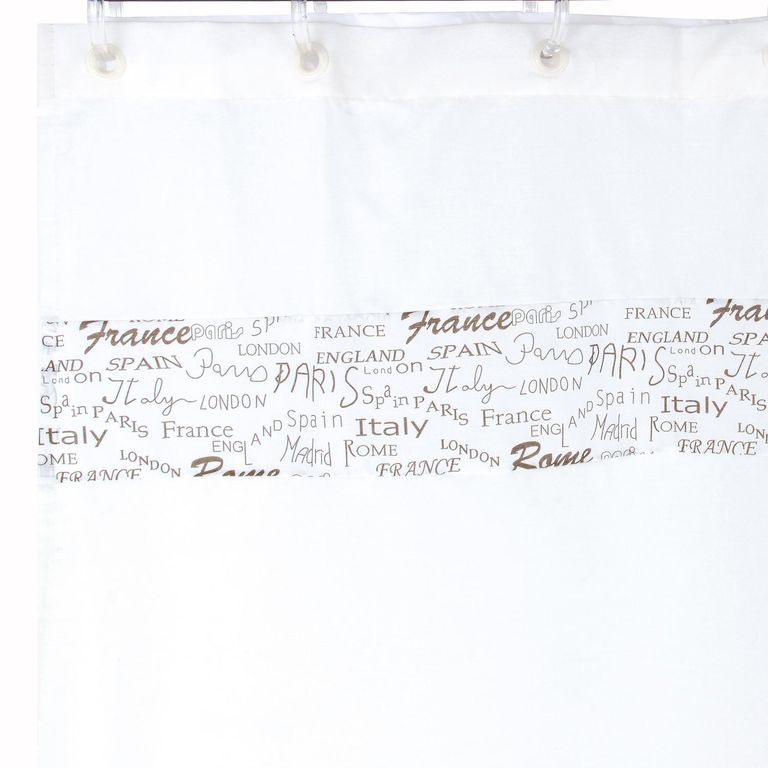 ROME
France Paris Sp FRANCE France Paris Sp FRANCE Fra
CE LONDON ENGLAND LONDON ENGLAND SPA
AND SPAIN Paris SPAIN Paris
London Italy PARIS London Italy PARIS London It
Spain PARIS LONDON Spain PARIS LONDON Spain PARIS
Italy France ENGLAND Spain Italy France ENGLAND Spain Italy
OME LONDON Madrid ROME LONDON Madrid ROME LON
FRANCE Rome FRANCE Rome Paris FRANCE